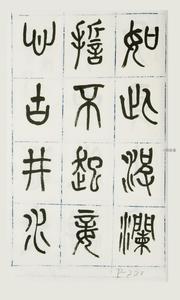 如此波瀾
誓不起妾
心古井水